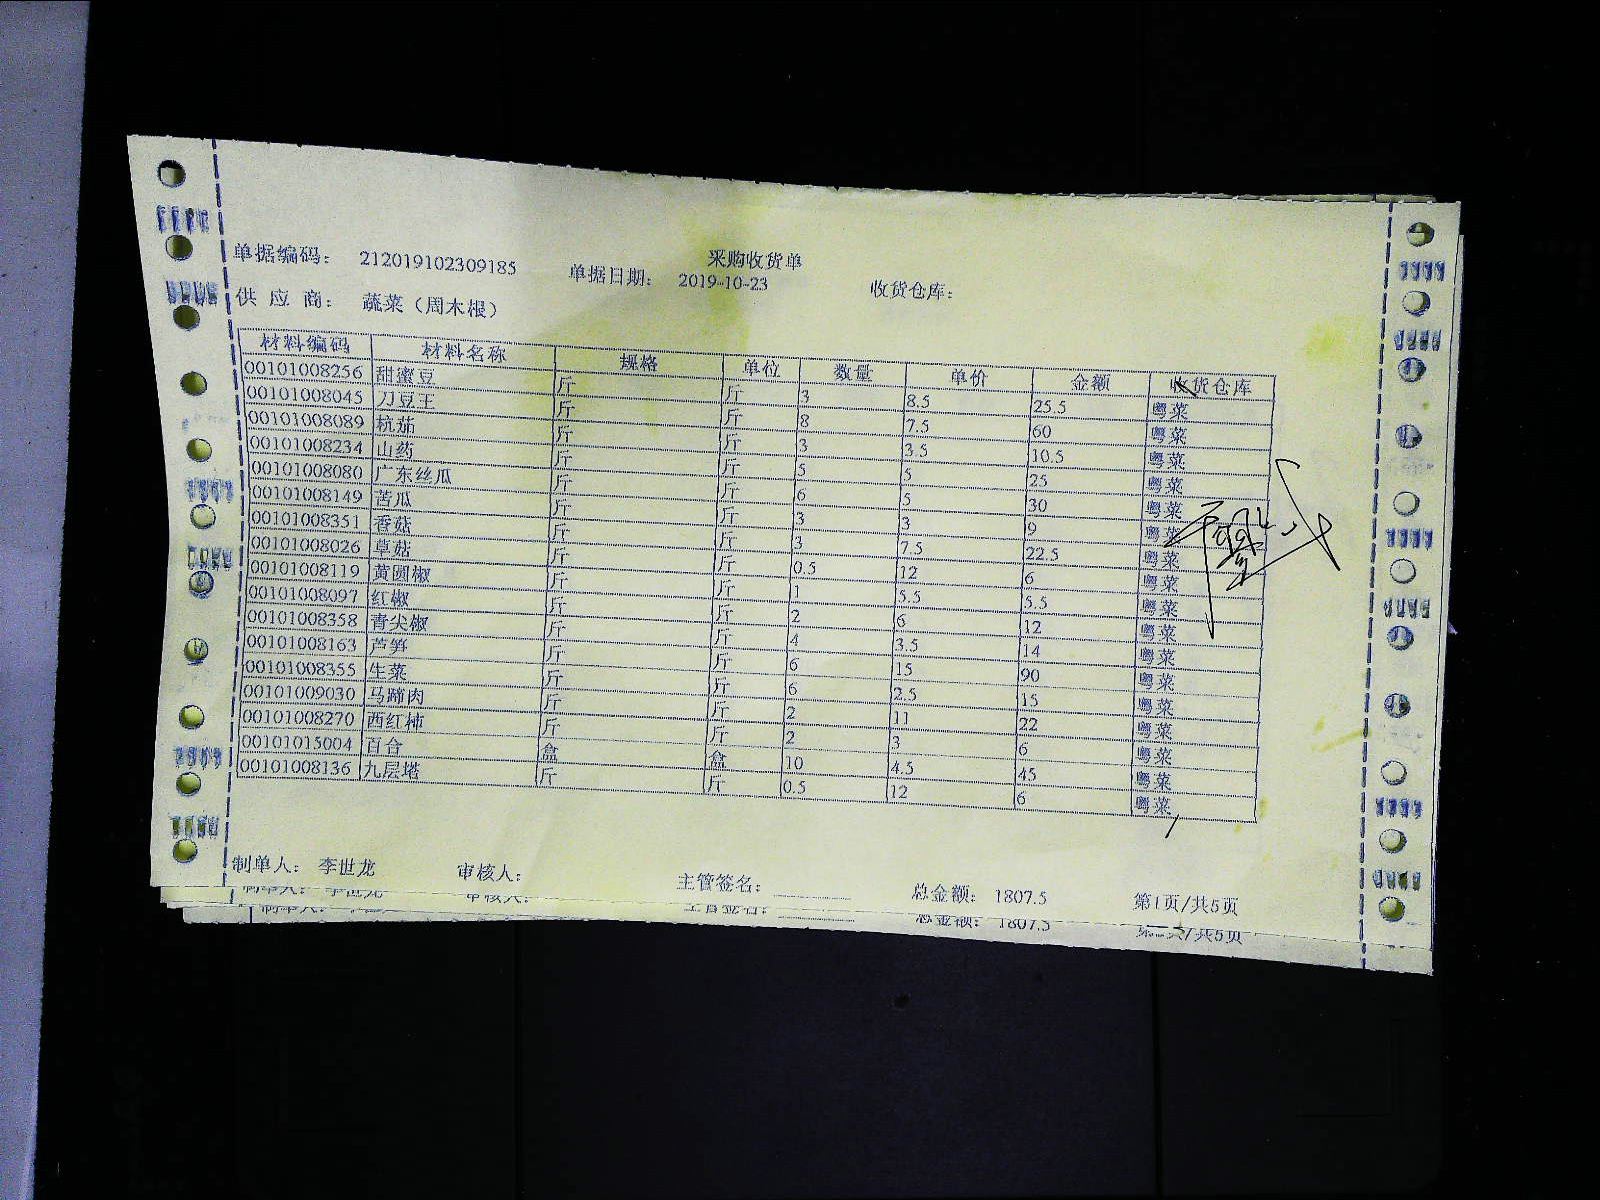 采购收货单
单据编码： 212019102309185 单据日期： 2019-10-23 收货仓库：
供 应 商： 蔬菜（周木根）
材料编码 材料名称 规格 单位 数量 单价 金额 收货仓库
00101008256 甜蜜豆 斤 斤 3 8.5 25.5 粤菜
00101008045 刀豆王 斤 斤 8 7.5 60 粤菜
00101008089 杭茄 斤 斤 3 3.5 10.5 粤菜
00101008234 山药 斤 斤 5 5 25 粤菜
00101008080 广东丝瓜 斤 斤 6 5 30 粤菜
00101008149 苦瓜 斤 斤 3 3 9 粤菜
00101008351 香菇 斤 斤 3 7.5 22.5 粤菜
00101008026 草菇 斤 斤 0.5 12 6 粤菜
00101008119 黄圆椒 斤 斤 1 5.5 5.5 粤菜
00101008097 红椒 斤 斤 2 6 12 粤菜
00101008358 青尖椒 斤 斤 4 3.5 14 粤菜
00101008163 芦笋 斤 斤 6 15 90 粤菜
00101008355 生菜 斤 斤 6 2.5 15 粤菜
00101009030 马蹄肉 斤 斤 2 11 22 粤菜
00101008270 西红柿 斤 斤 2 3 6 粤菜
00101015004 百合 盒 盒 10 4.5 45 粤菜
00101008136 九层塔 斤 斤 0.5 12 6 粤菜
制单人： 李世龙 审核人： 主管签名： 总金额： 1807.5 第1页/共5页
制单人： 李世龙 审核人： 主管签名： 总金额： 1807.5 /共5页